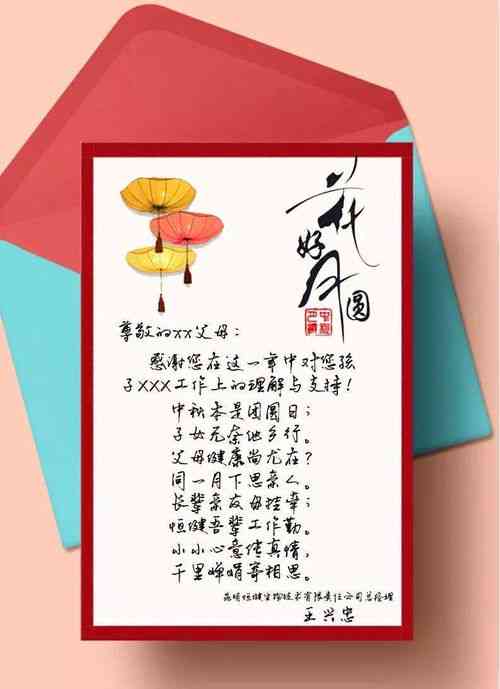 花好月圆
中秋
尊敬的XX父母：
感谢您在这一年中对您孩
子XXX工作上的理解与支持！
中秋本是团圆日；
子女无奈他乡行。
父母健康尚尤在？
同一月下思亲人。
长辈亲友毋挂牵；
恒健吾辈工作勤。
小小心意传真情，
千里婵娟寄相思。
昆明恒健生物技术有限责任公司总经理
王兴忠